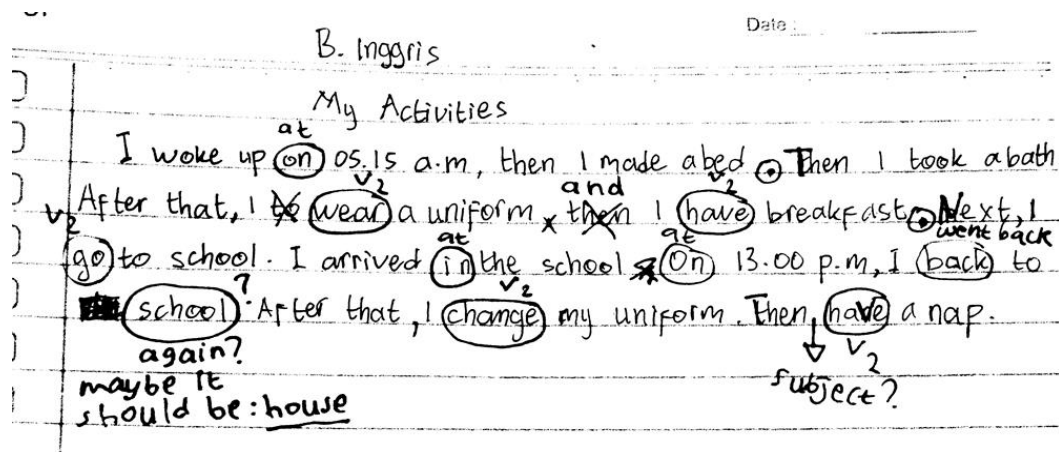 Date :
B. Inggris
My Activities
at
I woke up on 05.15 a.m, then I made abed . Then I took abath
V2 and V2
After that, I wear a uniform, then I have breakfast. Next, I
V2 at at went back
go to school. I arrived in the school On 13.00 p.m, I back to
? V2
school. After that, I change my uniform. Then, have a nap.
again? V2
maybe it subject?
should be: house